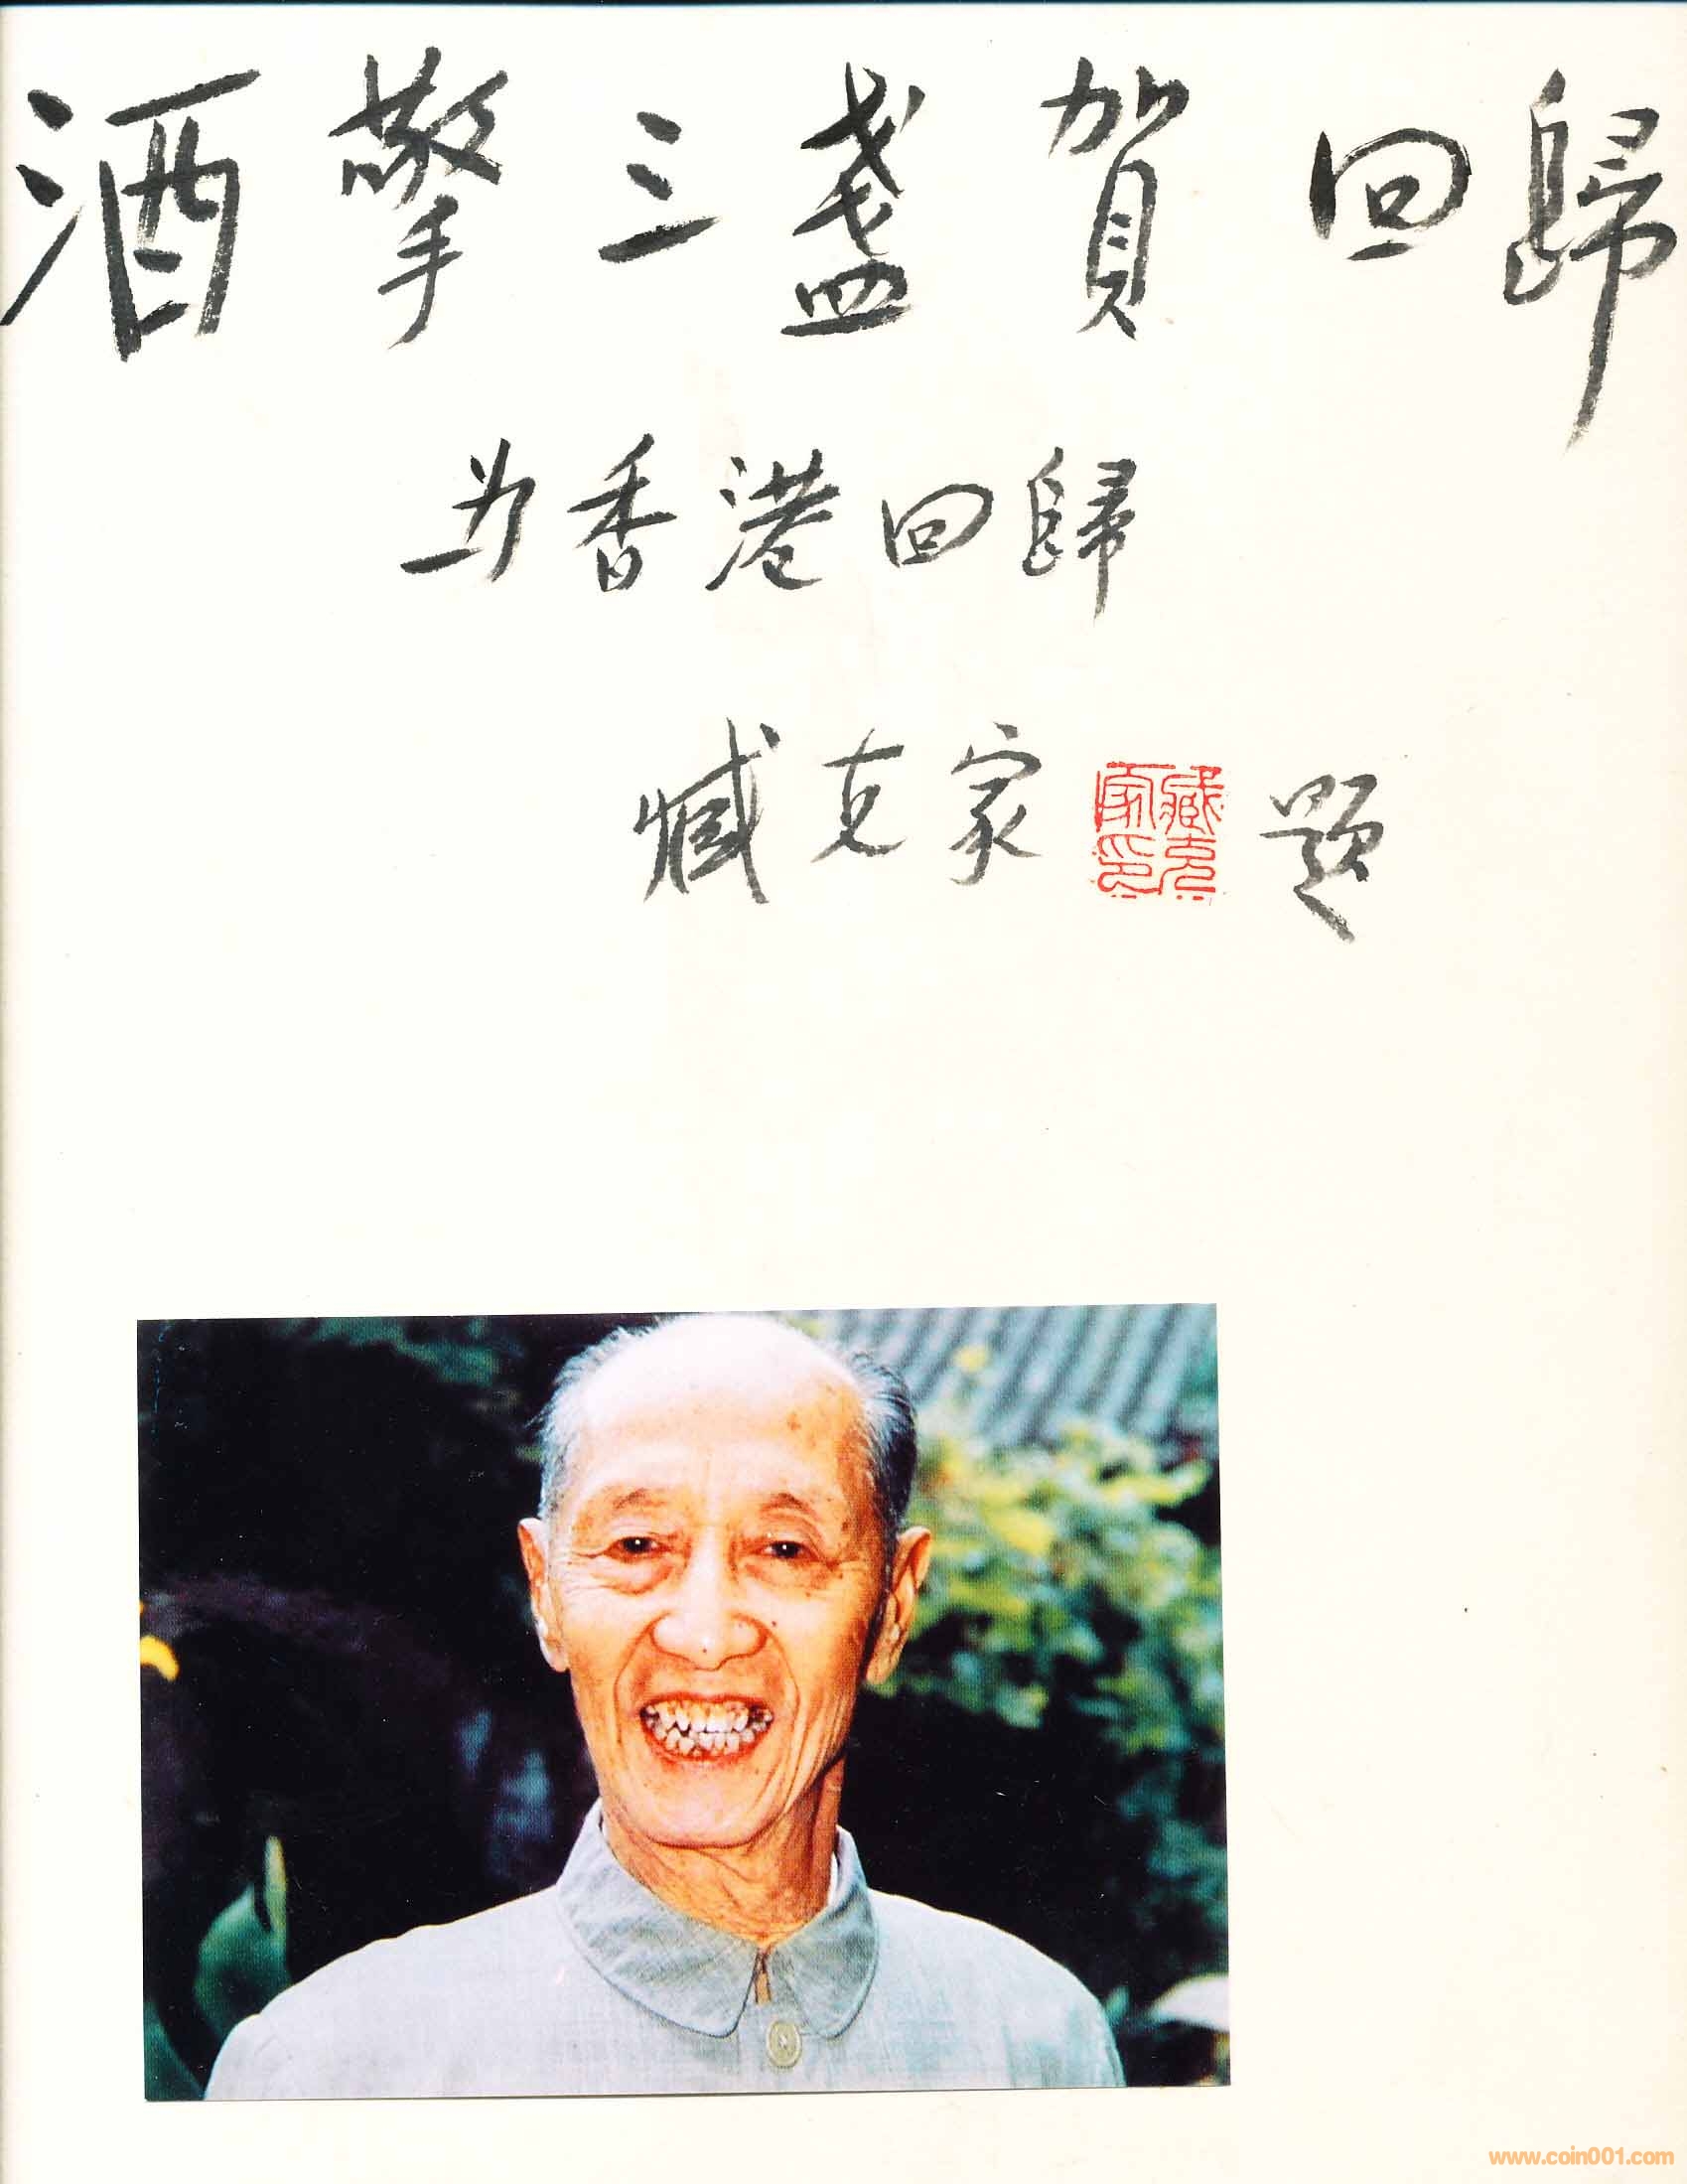 酒擎三盏賀回歸
为香港回歸
臧克家 臧克家印 题
www.coin001.com